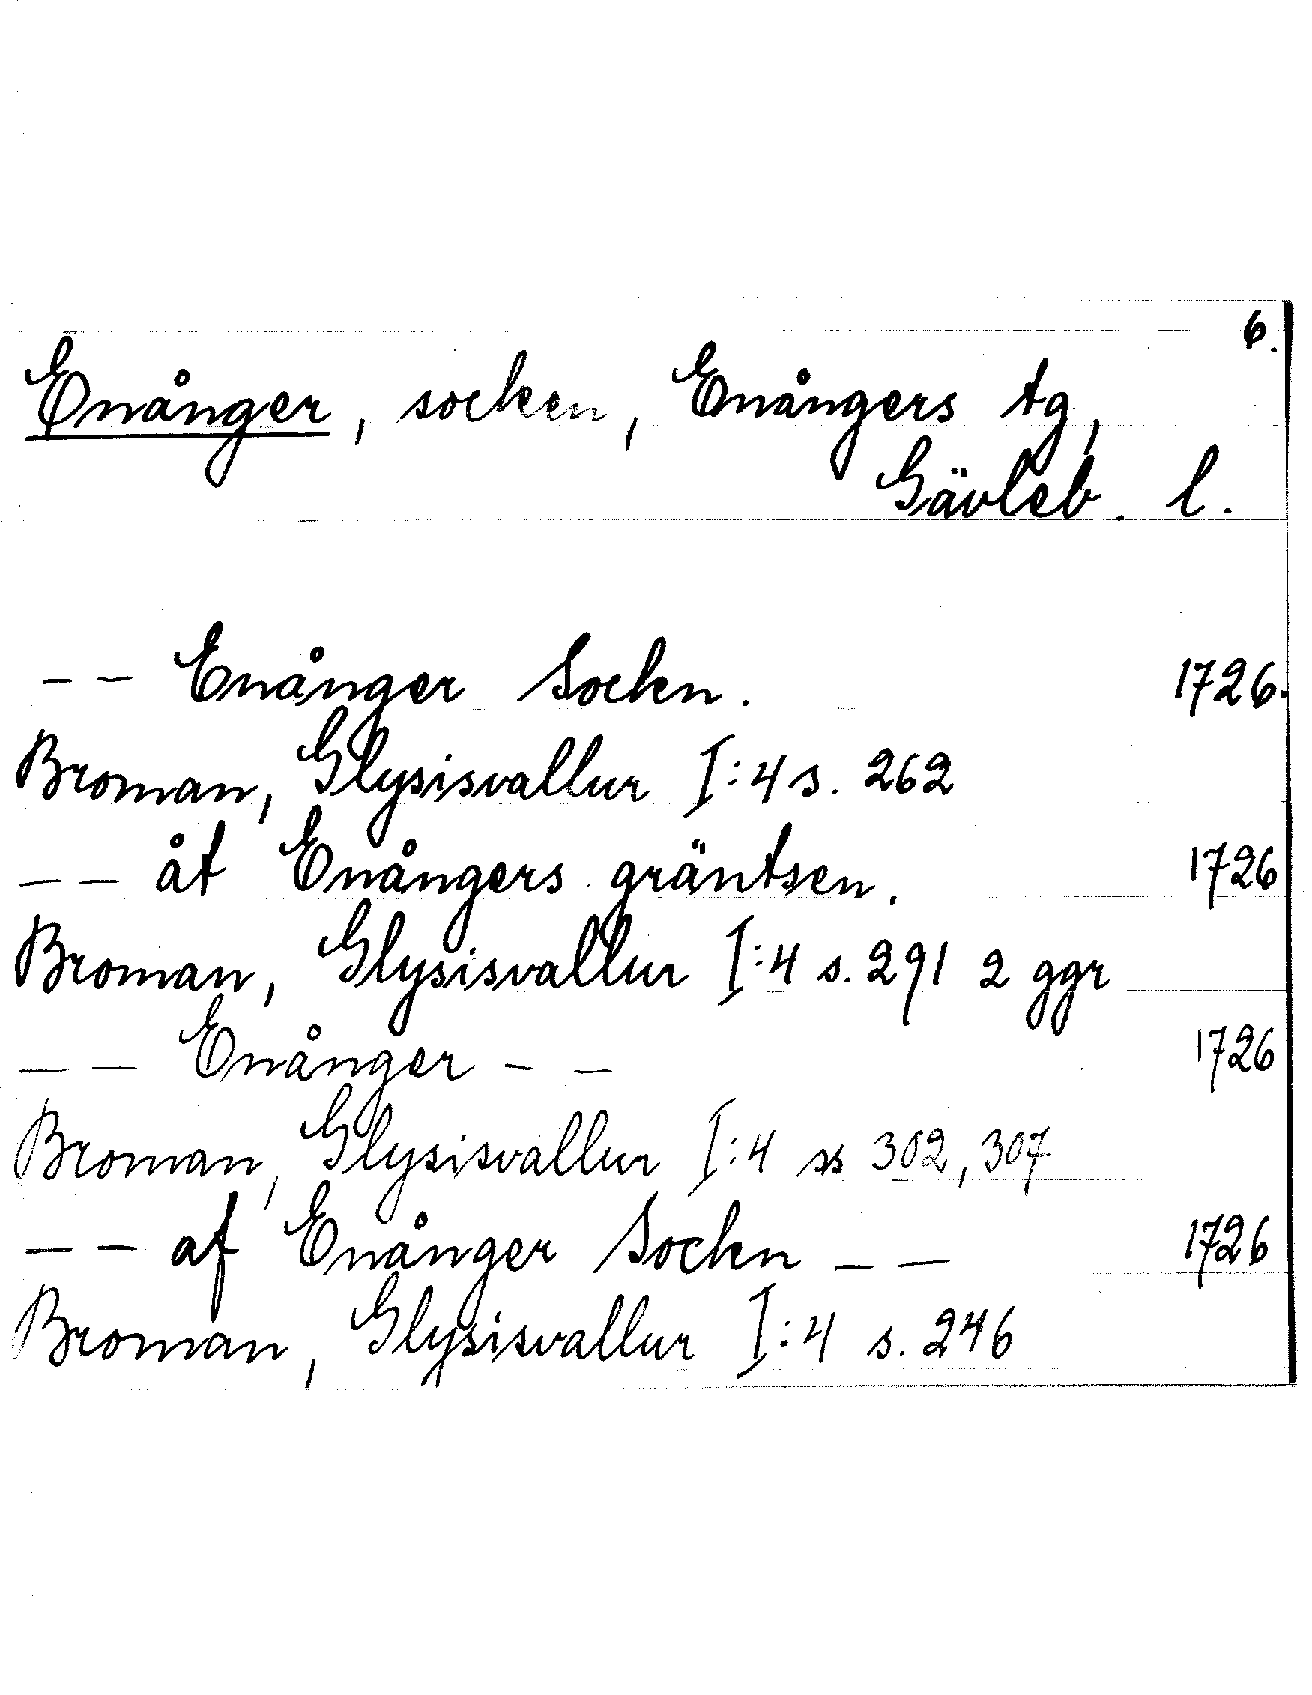 6.
Enånger, socken, Enångers tg,
Gävleb. l.
-- Enånger Sockn. 1726.
Broman, Glysisvallur I:4 s. 262
-- åt Enångers gräntsen. 1726
Broman, Glysisvallur I:4 s. 291 2 ggr
-- Enånger -- 1726
Broman, Glysisvallur I:4 ss 302, 307
-- af Enånger Sockn -- 1726
Broman, Glysisvallur I:4 s. 246